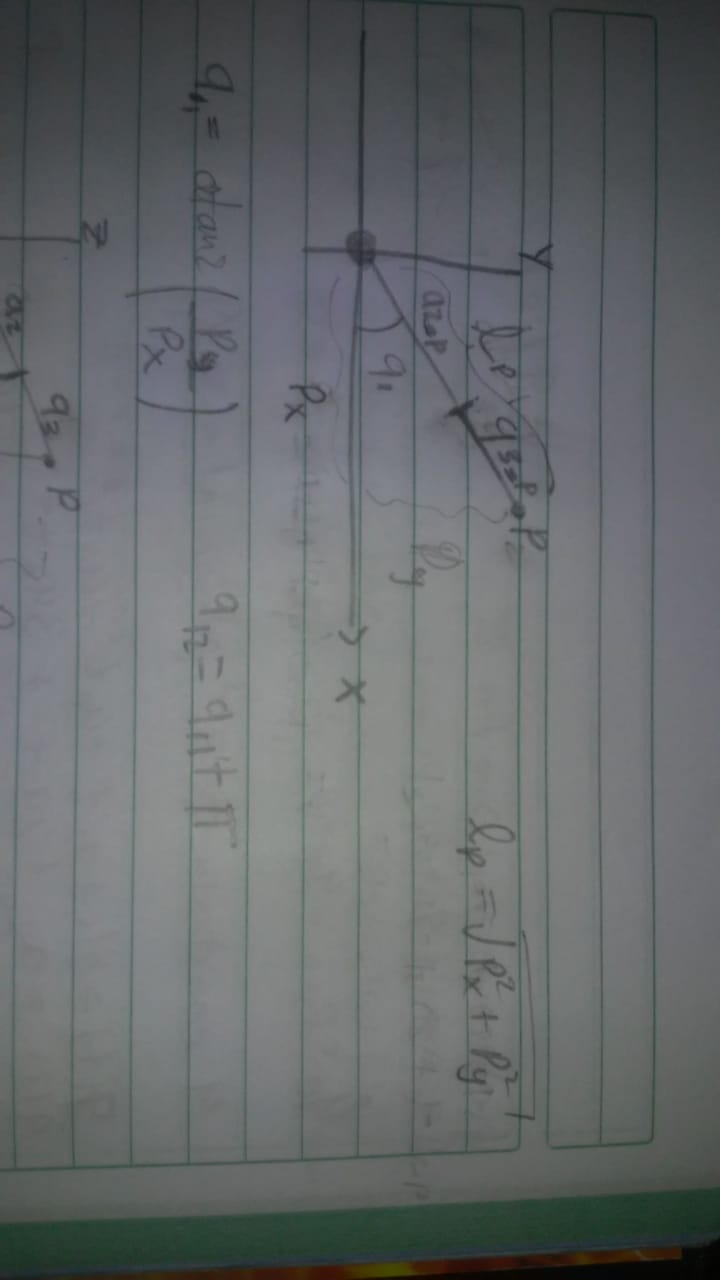 Y
lp
a2 → P
q3 → P
P
q1
Py
X
Px
lp = √Px² + Py²
q11 = atan2 (Py / Px)
q12 = q11 + π
Z
a2
q3
P